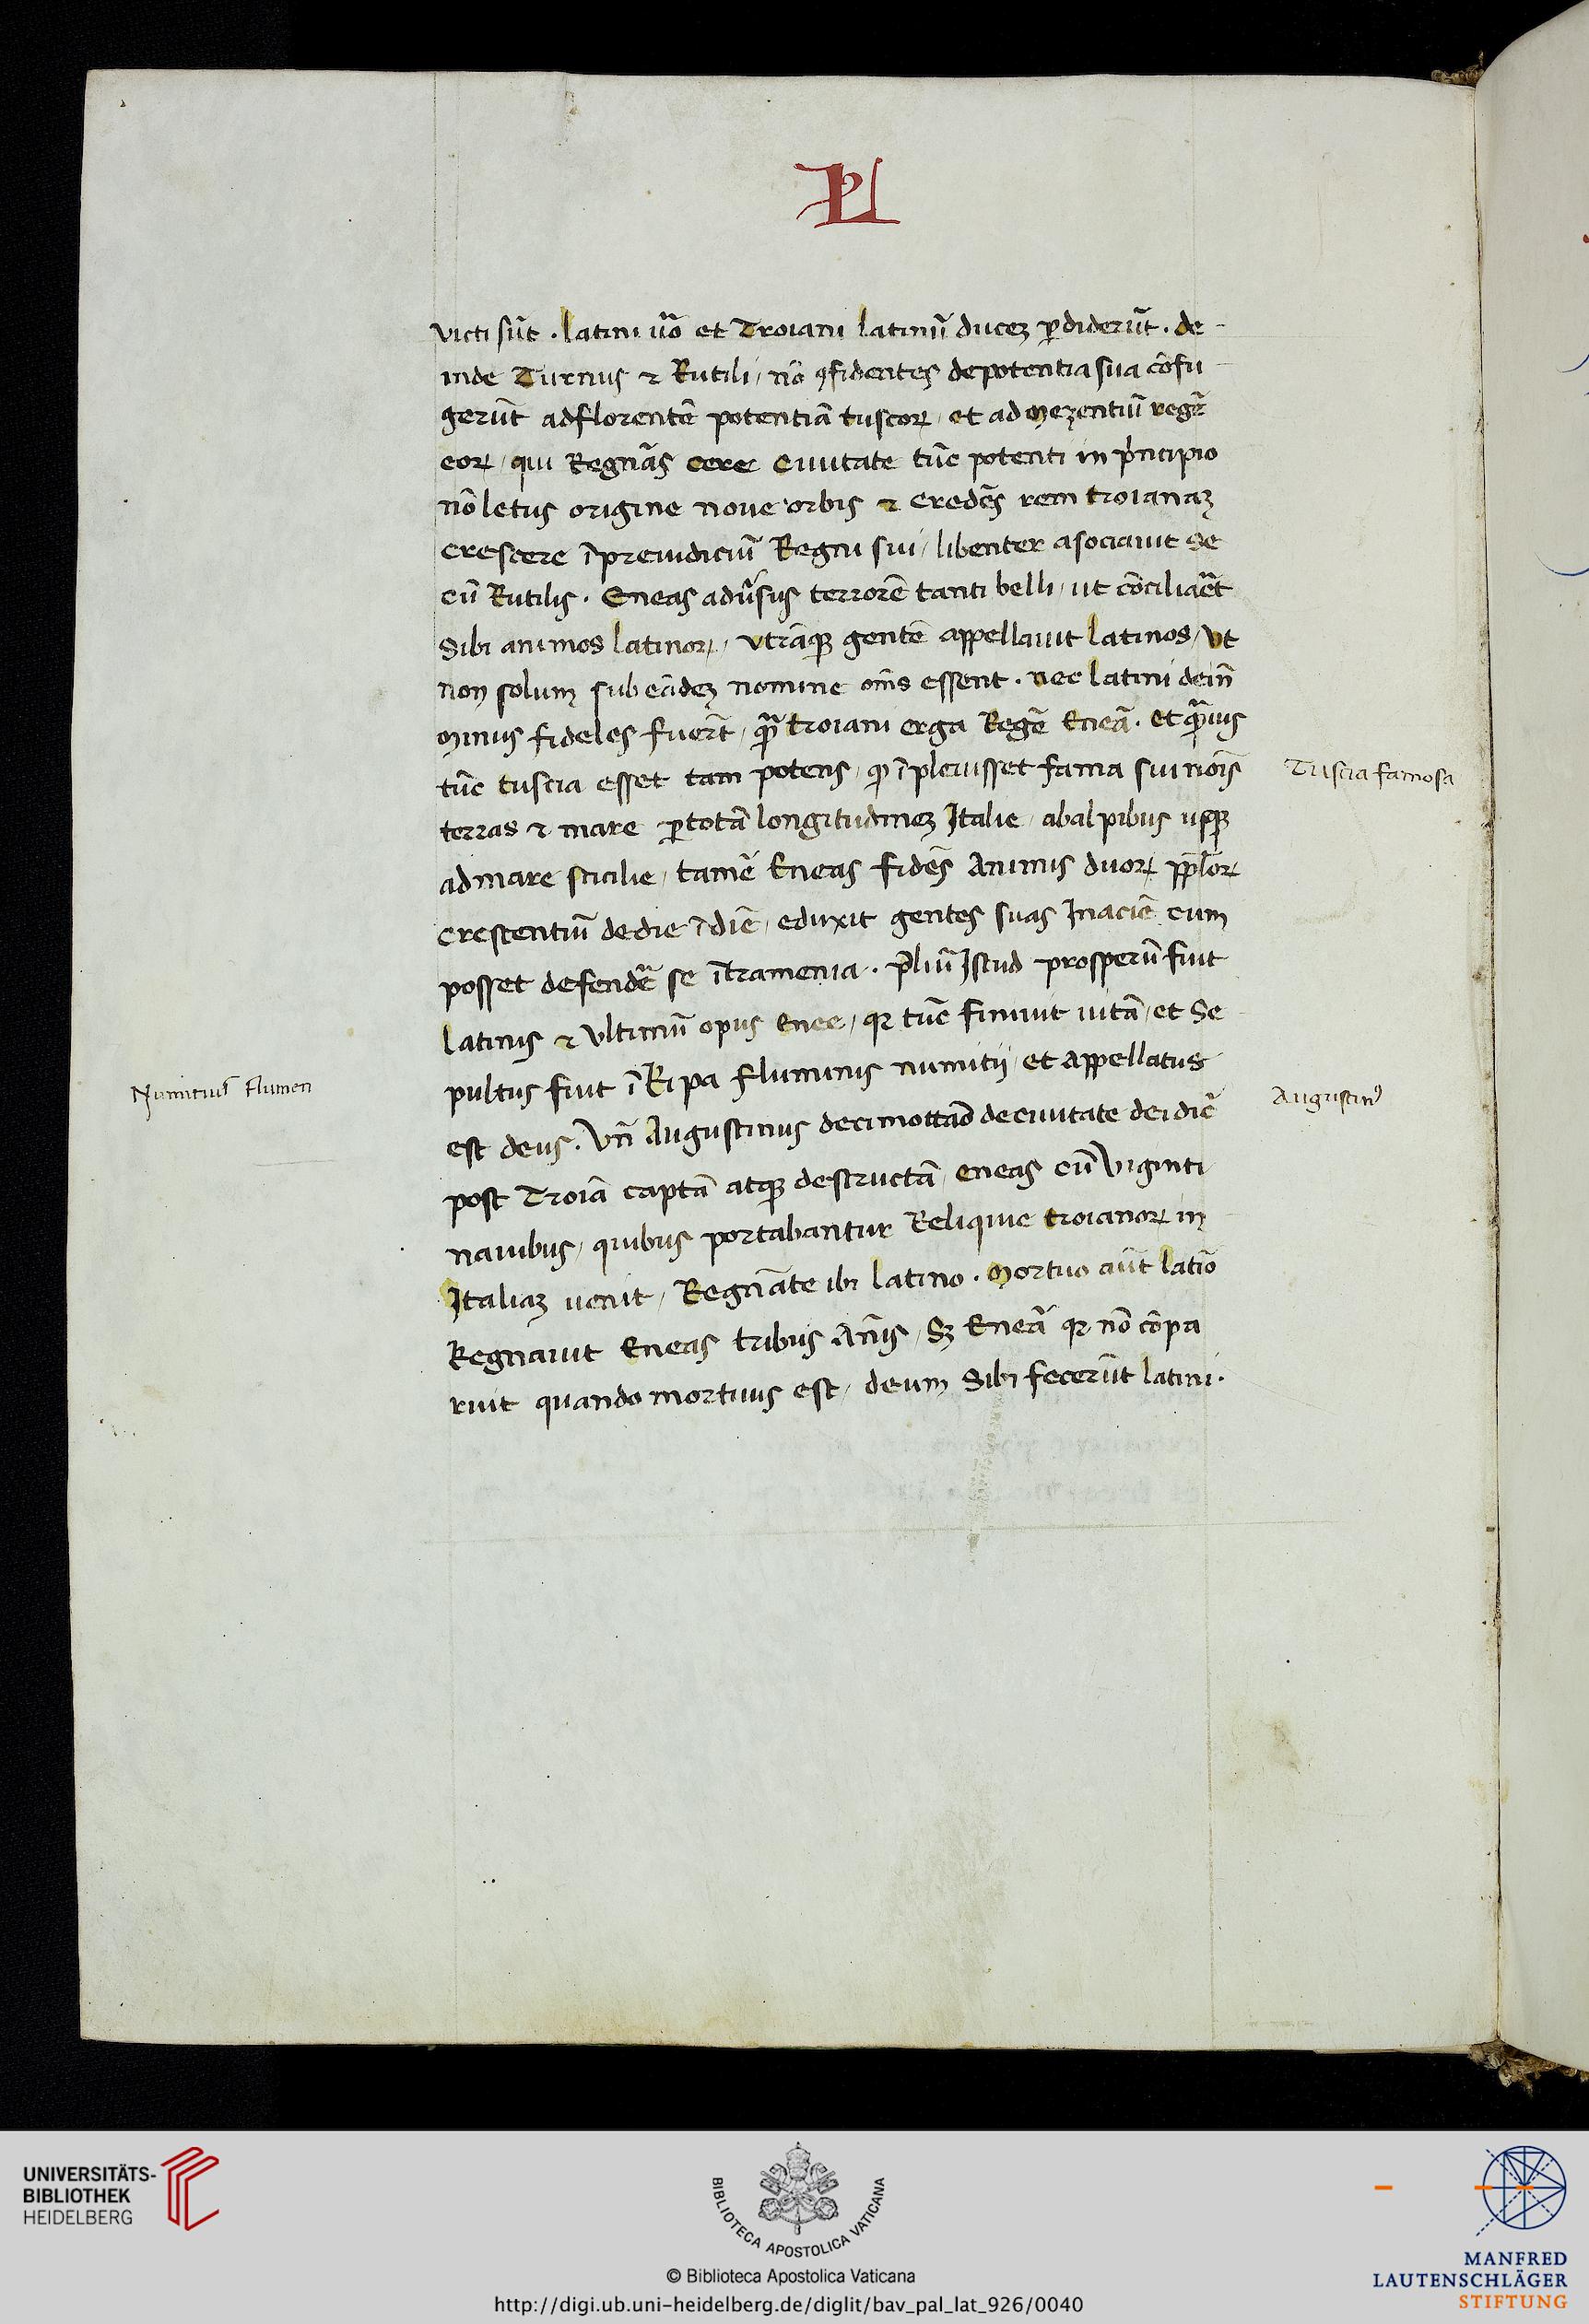 victi sūt . latini ūo et Troiani latinū ducez ꝑdiderūt . de
inde Turnus ⁊ Rutili / nō ꝯfidentes de potentia sua cōfu
gerūt ad florentē potentiā tuscoꝝ / et ad Mezentiū regē
eoꝝ / qui Regnās cere Ciuitate tūc potenti in pⁱncipio
nō letus origine noue orbis ⁊ credēs rem troianaz
crescere ī preiudiciū Regni sui / libenter asociauit se
cū Rutilis . Eneas adūsus terrorē tanti belli / ut cōciliaēt
Sibi animos latinoꝝ / vtrāqꝫ gentē appellauit latinos / Vt
non solum sub eādez nomine oīs essent . nec latini deīn
Minus fideles fuerūt / qꝫ troiani erga Regē Eneā . et qꝫuis
tūc tuscia esset tam potens / ꝙ īpleuisset fama sui noīs
terras ⁊ mare ꝑ totā longitudinez Italie / ab alpibus usqꝫ
ad mare scicilie / tamē Eneas fidēs Animis duoꝝ pploꝝ
Crescentiū de die ī diē / eduxit gentes suas In aciē cum
posset defendē se ītra menia . p̄liū Istud prosperū fuit
latinis ⁊ vltimū opus Enee / qꝛ tūc finiuit uitā / et Se
pultus fuit ī Ripa fluminis numitij / et Appellatus
est deus . Vn̄ Augustinus decimottāo de ciuitate dei dic̄
post Troiā captā atqꝫ destructā / eneas cū Viginti
nauibus / quibus portabantur Reliquie troianoꝝ in
Italiaz uenit / Regnāte ibi latino . Mortuo aūt latīo
Regnauit Eneas tribus Anīs / Sꝫ Eneā qꝛ nō cōpa
ruit quando mortuus est / deum Sibi fecerūt latini .
Tuscia famosa
Numitius flumen
Augustinꝰ
UNIVERSITÄTS-
BIBLIOTHEK
HEIDELBERG
BIBLIOTECA APOSTOLICA VATICANA
© Biblioteca Apostolica Vaticana
http://digi.ub.uni-heidelberg.de/diglit/bav_pal_lat_926/0040
MANFRED
LAUTENSCHLÄGER
STIFTUNG